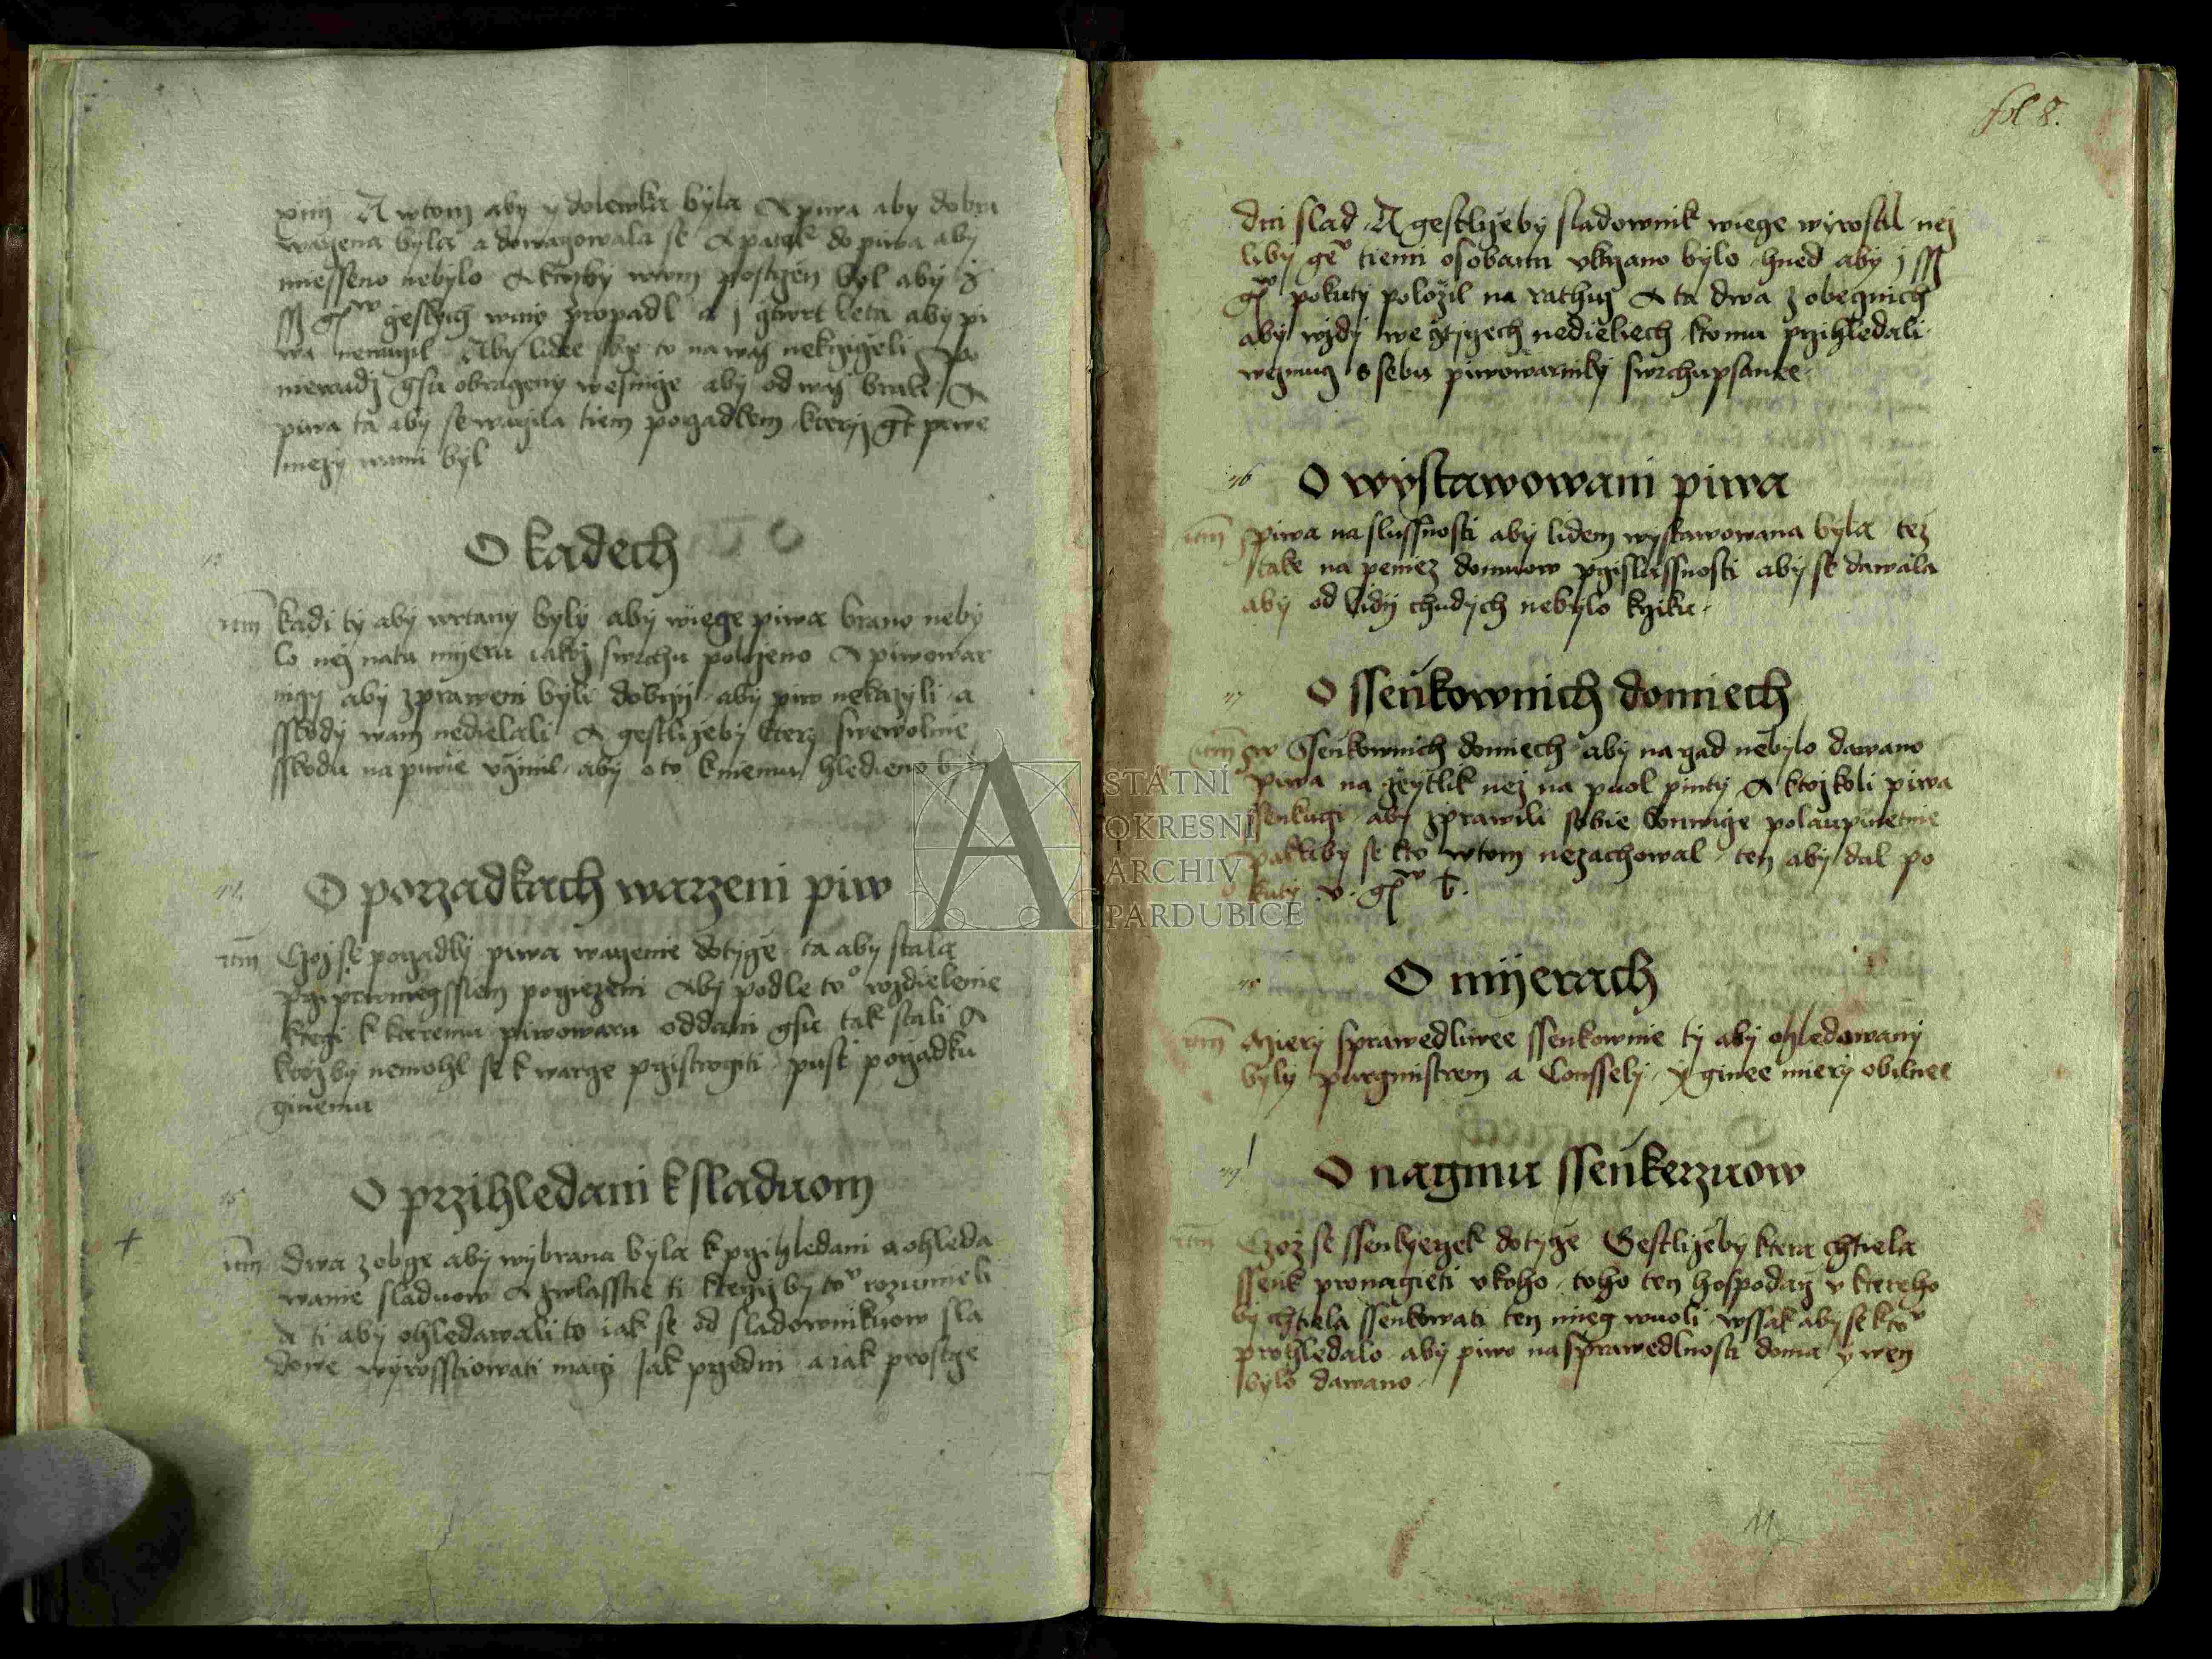 A wtom aby y dolewka byla A piwa aby dobra
warzena byla a dowarzowala se A patek do piwa aby
miesseno nebylo A ktozby wtom postizen byl aby
geskych winy propadl a j ctwrt leta aby pi
wa newarzil Aby lidee to na was nekrziceli Po
niewadz gsu obrazeny wesnice aby od was brali A
piwa ta aby se warzila tiem porzadkem kteryz gt prwe
mezy wami byl
O kadech
Itm kadi ty aby wrtany byly aby wiece piwa brano neby
lo nez na tu mijeru iakoz swrchu polozeno A piwowar
nicy aby zpraweni byli dobrzij aby piw nekazyli a
sskody wam nedielali A gestlizeby ktery swewolnie
sskodu na piwie vczinil aby oto k niemu hledieno bylo
O porzadkach warzeni piw
Itm Czoz se porzadky piwa warzenie dotyce ta aby stala
przi prwniegssiem porziezeni Aby podle to rozdielenie
kterzi k kteremu piwowaru oddani gsu tak stali A
ktoz by nemohl se k warze przistrogiti pust porzadku
ginemu
15
O przihledani k sladuom
Itm Dwa z obce aby wybrana byla k przihledani a ohleda
wanie sladuow A zwlasstie ti kterziz by to rozumieli
A ti aby ohledawali to iak se od sladownikuow sla
dowe wyrosstiowati magi Jak przedni a iak prostrze
fol 8.
dni slad A gestlizeby sladownik wiece wyrostil nez
liby ge tiemi osobami vkazano bylo hned aby j ss
g pokuty polozil na rathuz A ta dwa z obecznich
aby wzdy we cztyrzech nedielech ktomu przihledali
wezmuc s sebu piwowarniky swrchupsanee
16 O wystawowani piwa
Itm piwa na slussnosti aby lidem wystawowana byla tez
take na peniez domuow przislussnosti aby se dawala
aby od lidij chudych nebylo krziku
17 O ssenkownich domiech
Itm w Ssenkownich domiech aby na zad nebylo dawano
piwa na zeytlik nez na puol pinty A ktozkoli piwa
ssenkugi aby zprawili sobie konwice polaupinetnie
pakliby se kto wtom nezachowal ten aby dal po
kuty v g
18 O mijerach
Itm Miery sprawedliwee ssenkownie ty aby ohledawany
byly purgmistrem a Conssely y ginee miery obilnee
19 O nagmu ssenkerzuow
Itm Czoz se ssenkyerzek dotyce Gestlizeby ktera chtiela
ssenk pronagieti v koho toho ten hospodarz v ktereho
by chtiela ssenkowati ten mieg wuoli wssak aby se kto
prohledalo aby piwo na sprawedlnosti doma y wen
bylo dawano
11
STÁTNÍ
OKRESNÍ
ARCHIV
PARDUBICE